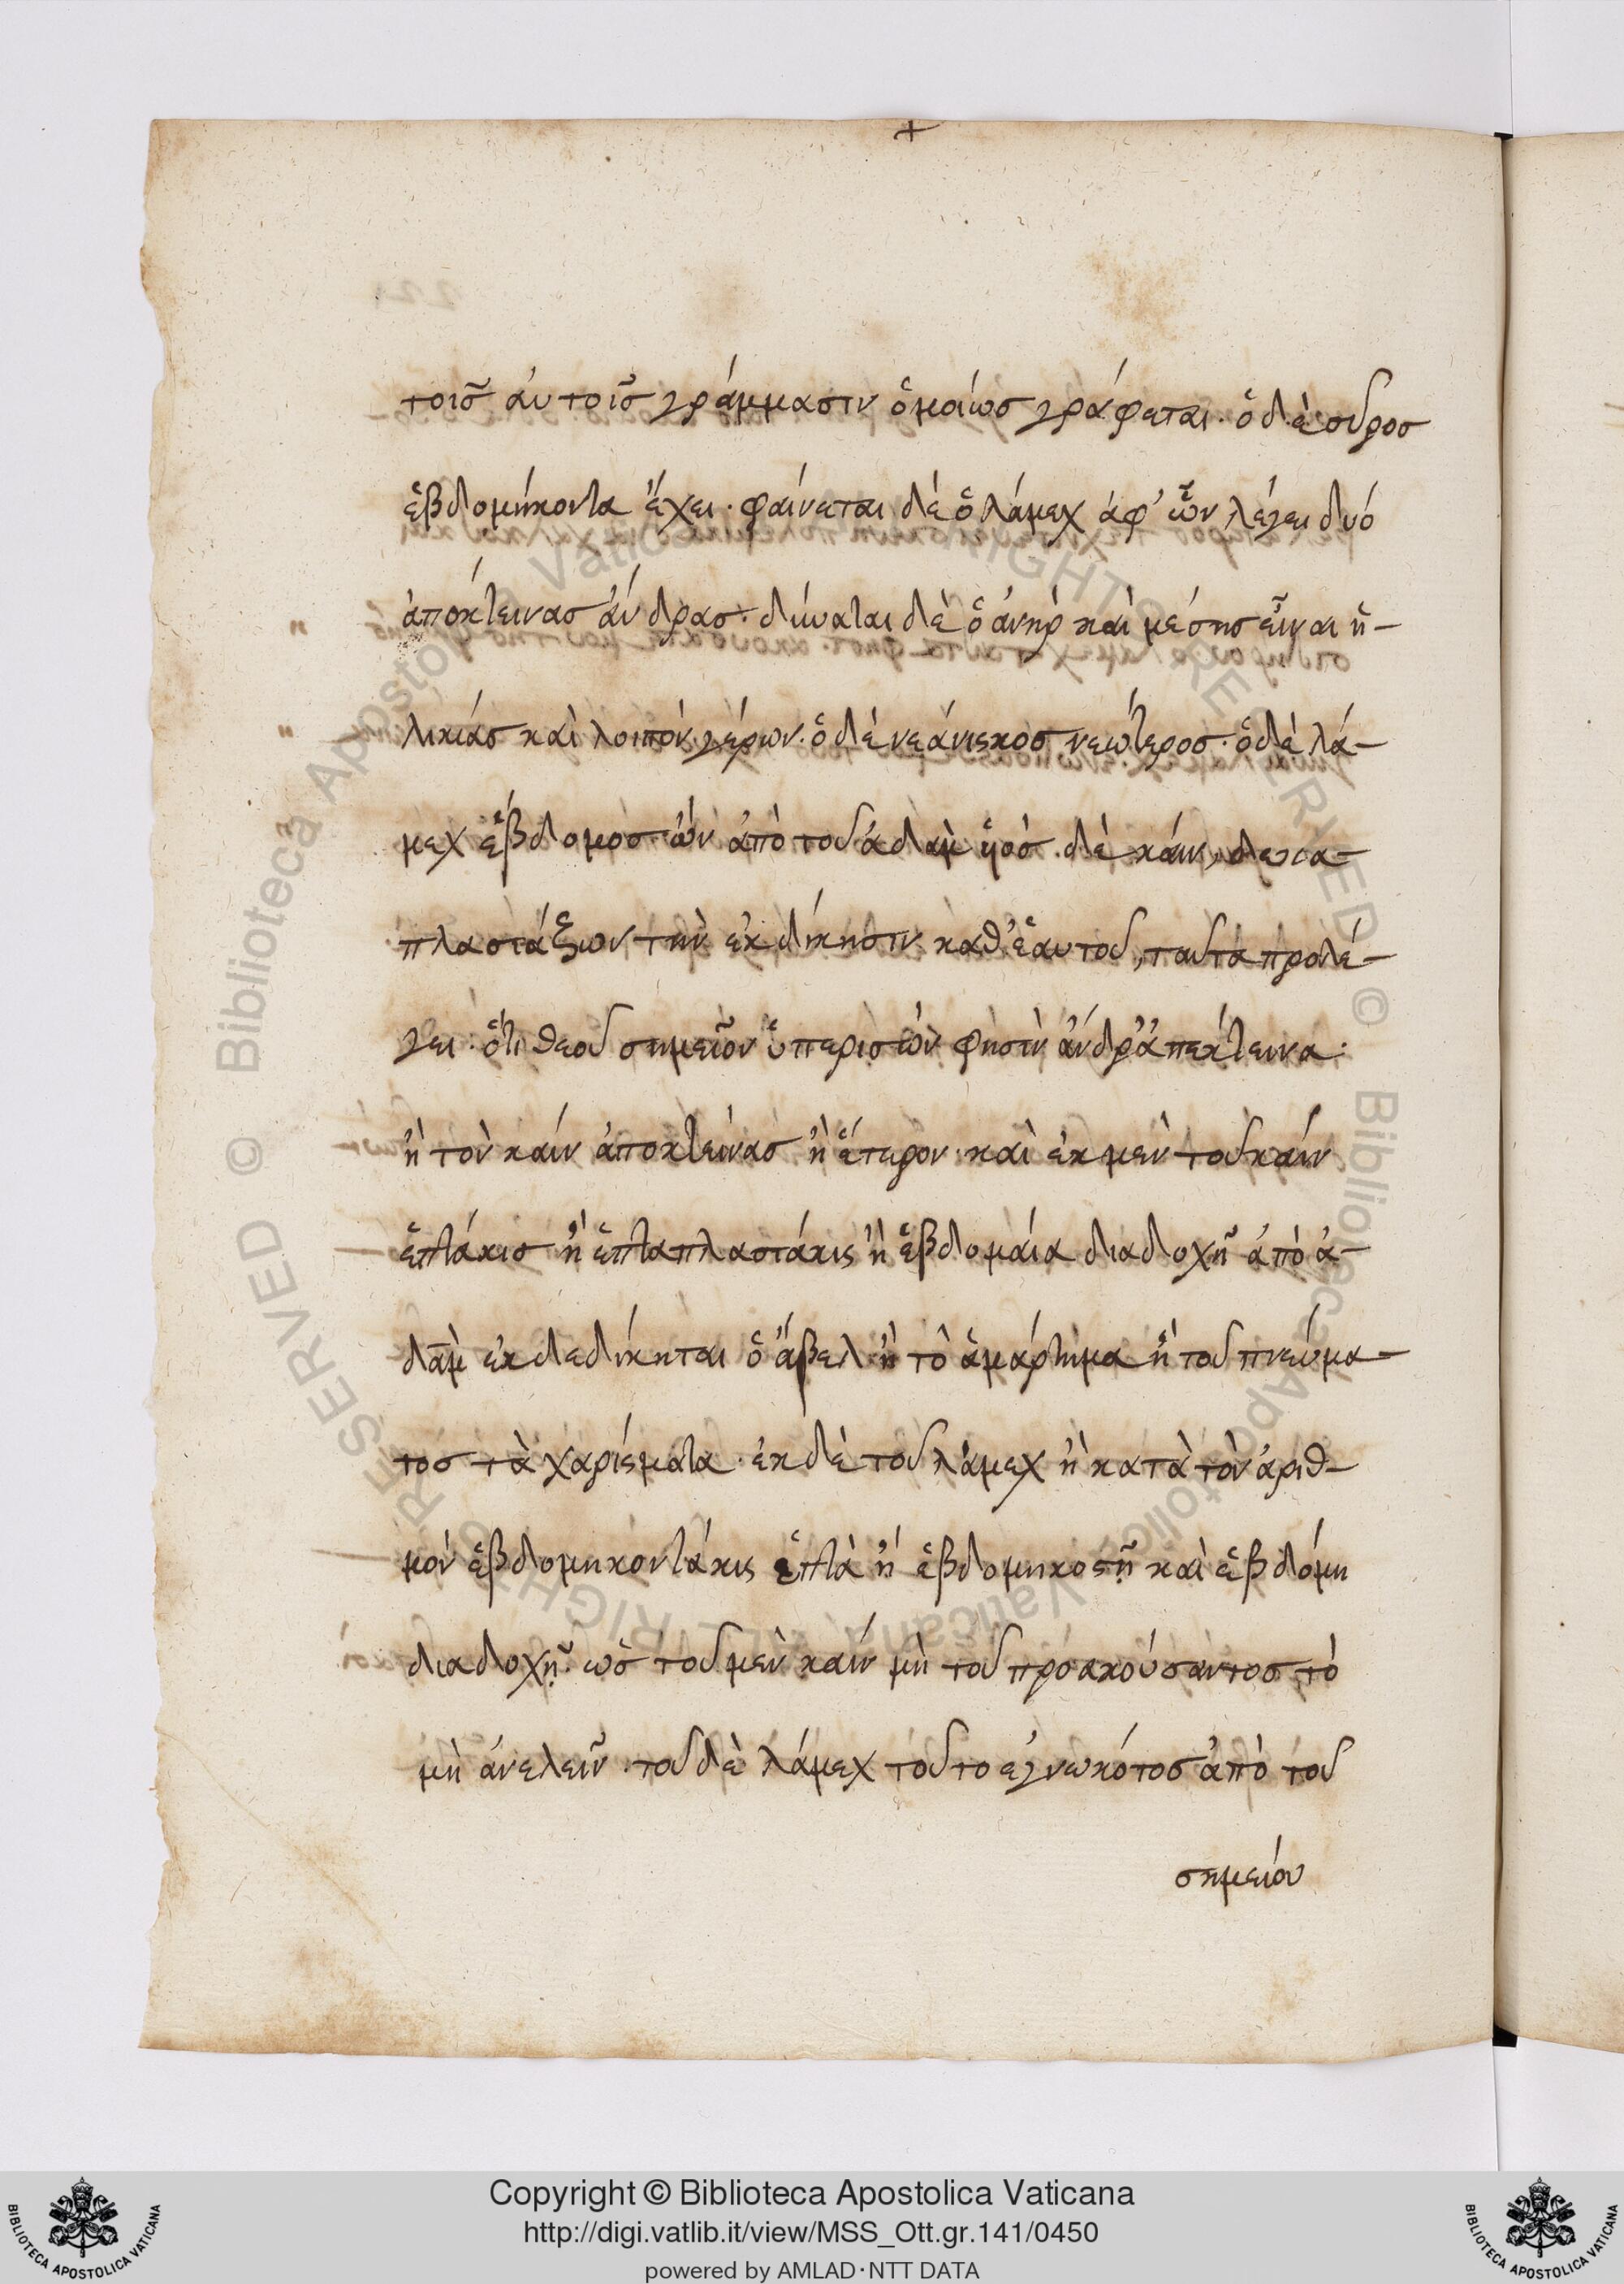 +
τοῖσ ἀυτοῖσ γράμμασιν ὁμοίωσ γράφεται. ὁ δὲ σύροσ
ἑβδομήκοντα ἔχει. φαίνεται δὲ ὁ λάμεχ ἀφ' ὧν λέγει δυό
ἀποκτεινασ ἄνδρασ. δύναται δὲ ὁ ἀνὴρ καὶ μέσησ εἶναι ἡ-
λικίασ καὶ λοιπὸν γέρων. ὁ δὲ νεάνισκοσ νεώτεροσ. ὁ δὲ λά-
μεχ ἕβδομοσ ὢν ἀπὸ τοῦ ἀδὰμ δὲ κάιν,
πλαστάξων τὴν ἐκδίκησιν καθ' ἑαυτοῦ, ταῦτα προλέ-
γει. ὅτι θεοῦ σημεῖον ὑπεριστὼν φησὶν ἄνδρ' ἀπέκτεινα.
ἢ τὸν καίν ἀποκτείνασ ἢ ἕτερον. καὶ ἐκ μὲν τοῦ κάιν
ἑπτάκισ ἢ ἑπταπλαστάκις ἢ ἑβδομάια διαδοχῆ ἀπὸ ἀ-
δὰμ ἐκδεδίκηται ὁ ἄβελ ἢ τὸ ἁμάρτημα ἢ τοῦ πνεύμα-
τοσ τὰ χαρίσματα. ἐκ δὲ τοῦ λάμεχ ἢ κατὰ τὸν ἀριθ-
μὸν ἑβδομηκοντάκις ἑπτὰ ἢ ἑβδομηκοστῇ καὶ ἑβδόμη
διαδοχῇ. ὡσ τοῦ μὲν καίν μὴ τοῦ προακούσαντοσ τὸ
μὴ ἀνελεῖν. τοῦ δὲ λάμεχ τοῦτο ἐγνωκότοσ ἀπὸ τοῦ
σημείου
Copyright © Biblioteca Apostolica Vaticana
http://digi.vatlib.it/view/MSS_Ott.gr.141/0450
powered by AMLAD·NTT DATA